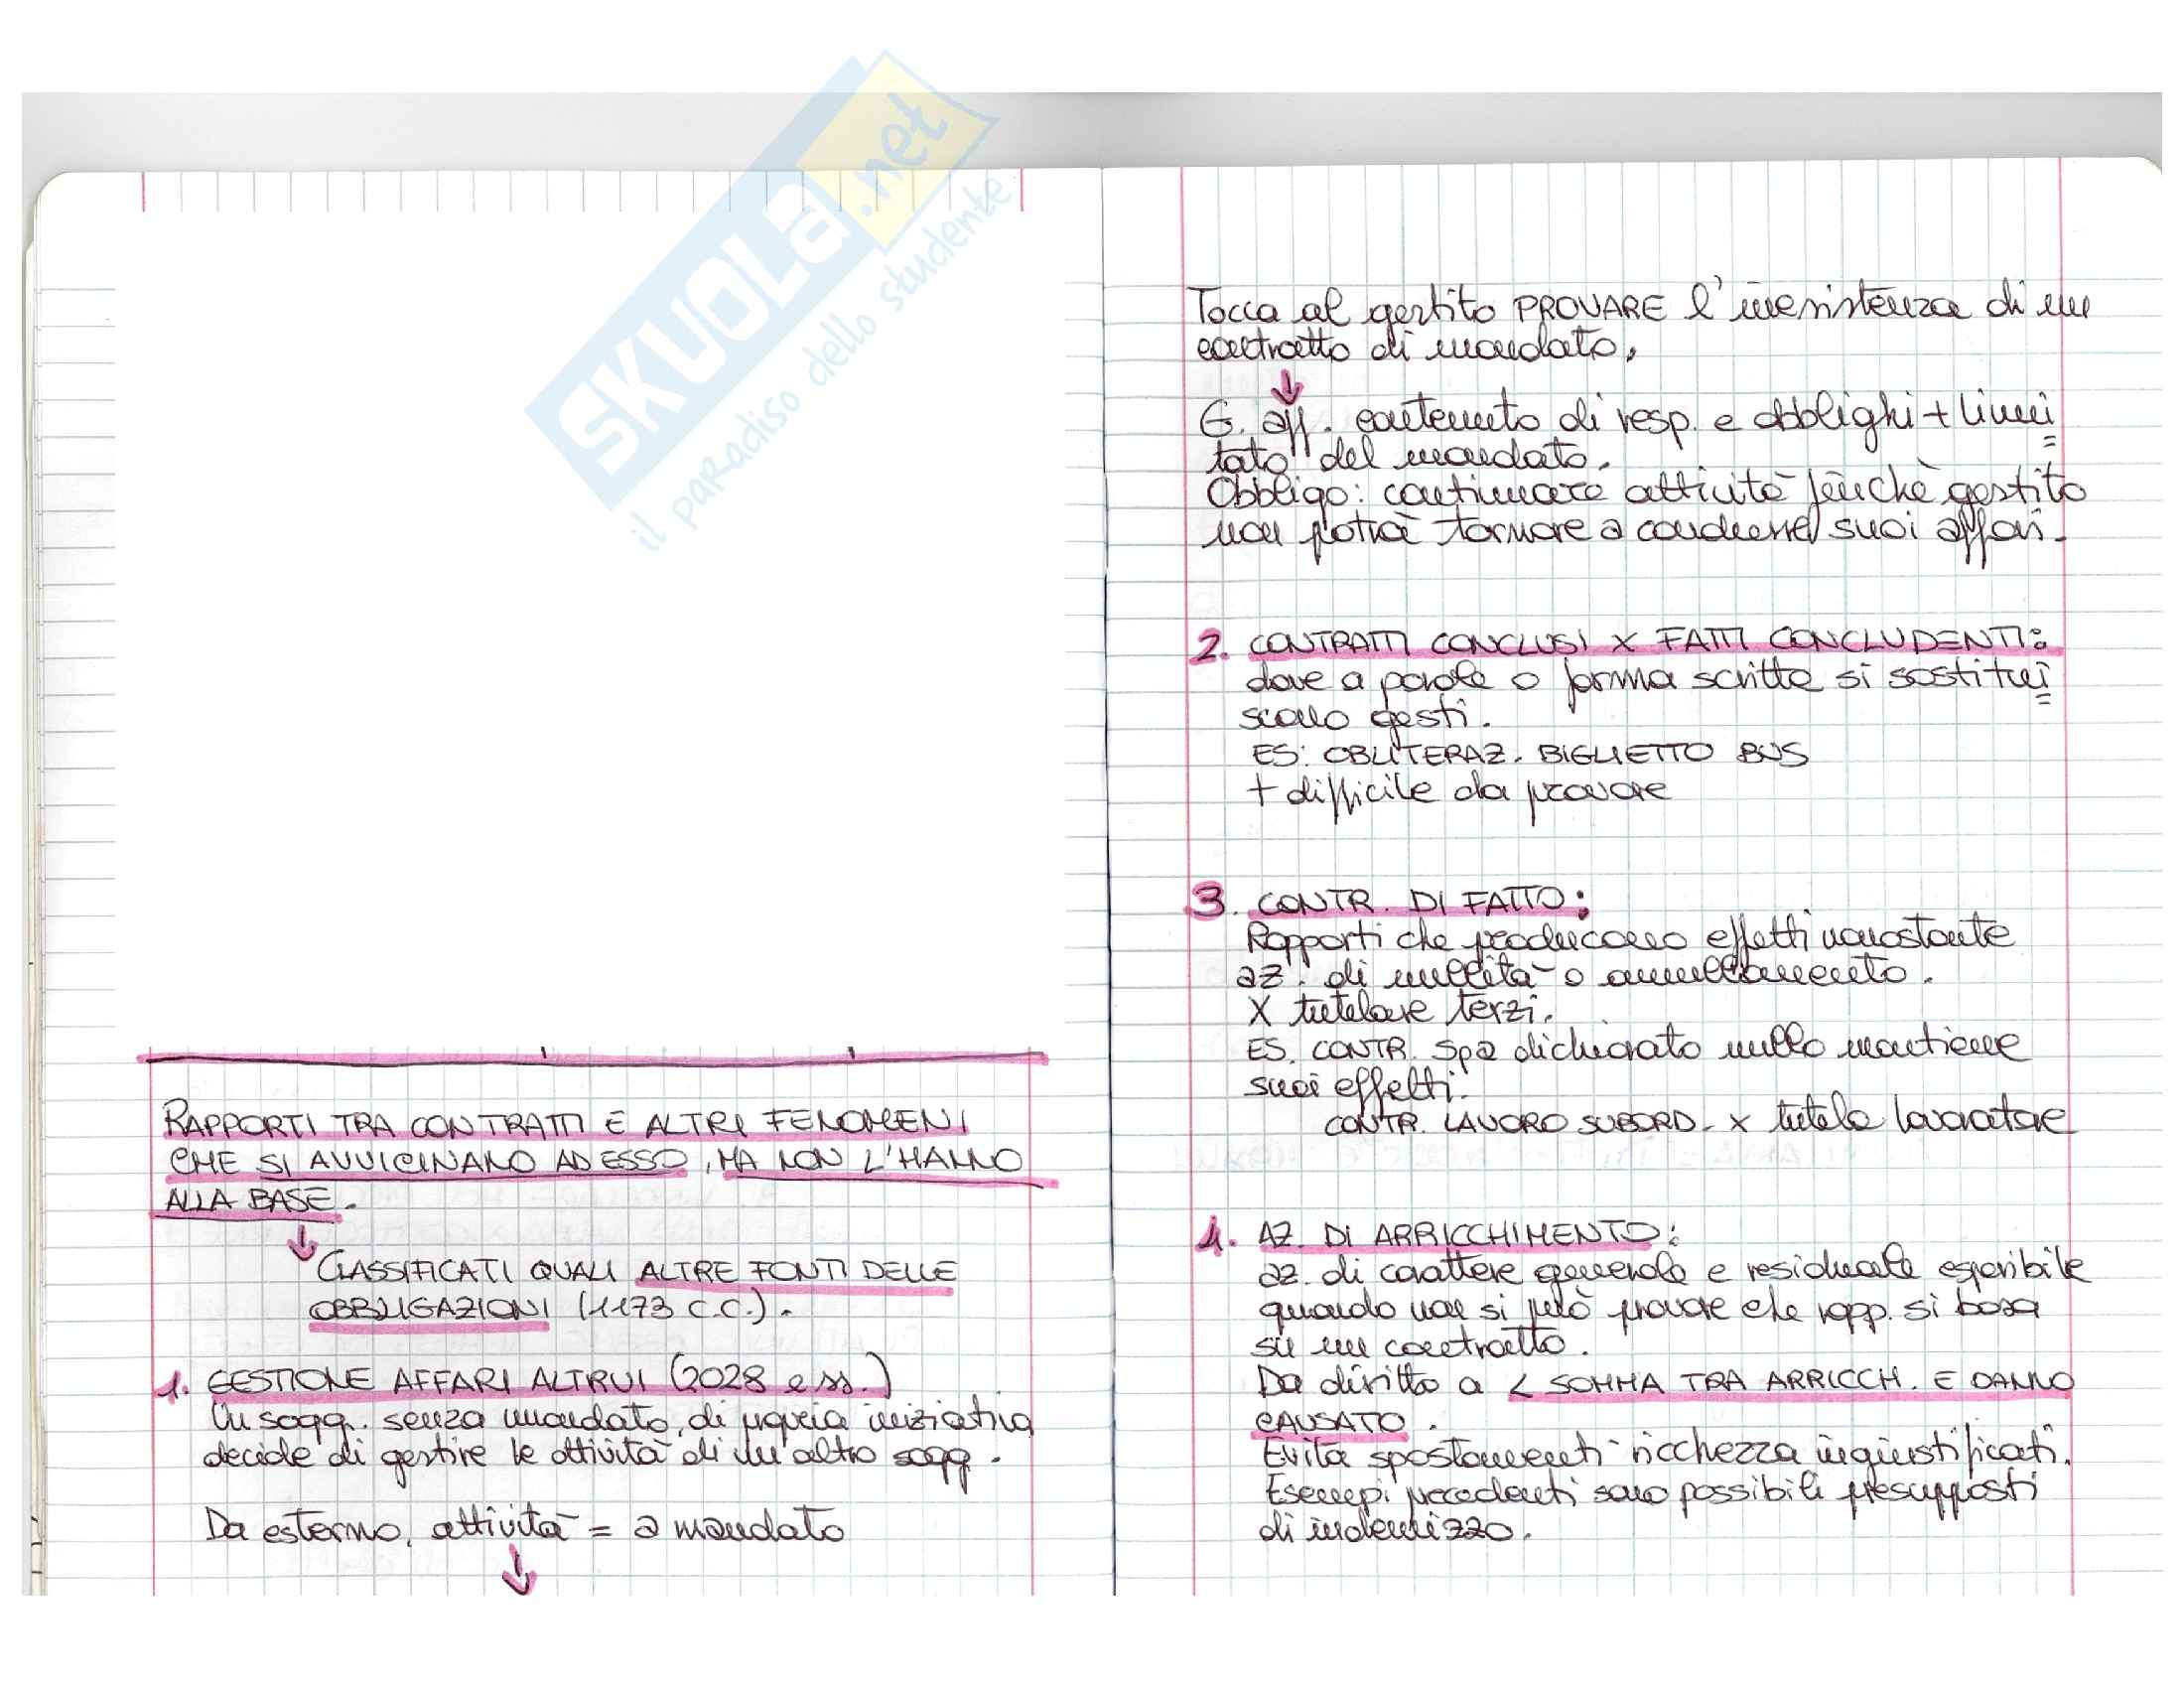 SKUOLA.net
il paradiso dello studente
RAPPORTI TRA CONTRATTI E ALTRI FENOMENI
CHE SI AVVICINANO AD ESSO, MA NON L'HANNO
ALLA BASE.
↓
CLASSIFICATI QUALI ALTRE FONTI DELLE
OBBLIGAZIONI (1173 C.C.).
1. GESTIONE AFFARI ALTRUI (2028 e ss.)
Un sogg. senza mandato, di propria iniziativa
decide di gestire le attività di un altro sogg.
Da esterno, attività = a mandato
↓
Tocca al gestito PROVARE l'inesistenza di un
contratto di mandato.
↓
G. aff. contenuto di resp. e obblighi + limi
tato del mandato.
Obbligo: continuare attività finchè gestito
non potrà tornare a condurre suoi affari.
2. CONTRATTI CONCLUSI X FATTI CONCLUDENTI:
dove a parole o forma scritta si sostitui
scono gesti.
ES: OBLITERAZ. BIGLIETTO BUS
+ difficile da provare
3. CONTR. DI FATTO:
Rapporti che producono effetti nonostante
az. di nullità o annullamento.
X tutelare terzi.
ES. CONTR. Spa dichiarato nullo mantiene
suoi effetti.
CONTR. LAVORO SUBORD. X tutela lavoratore
4. AZ. DI ARRICCHIMENTO:
az. di carattere generale e residuale esperibile
quando non si può provare che rapp. si basa
su un contratto.
Da diritto a < SOMMA TRA ARRICCH. E DANNO
CAUSATO.
Evita spostamenti ricchezza ingiustificati.
Esempi precedenti sono possibili presupposti
di indennizzo.